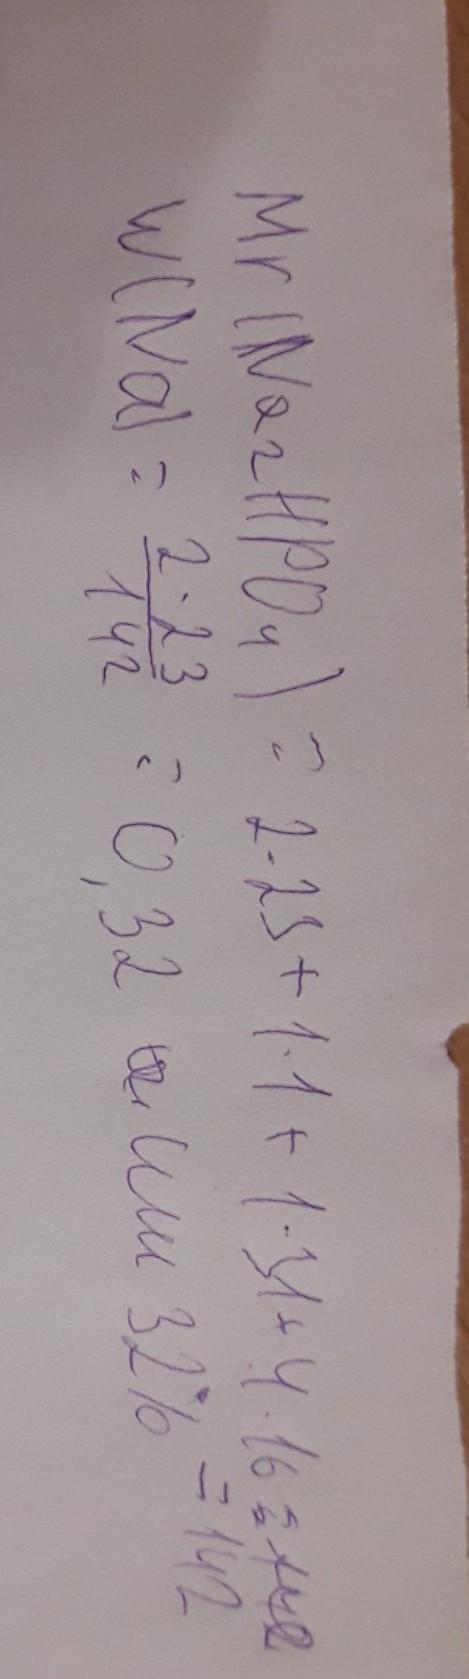 Mr(Na2HPO4) = 2·23+1·1+1·31+4·16=
=142
W(Na) = 2·23/142 = 0,32 или 32%